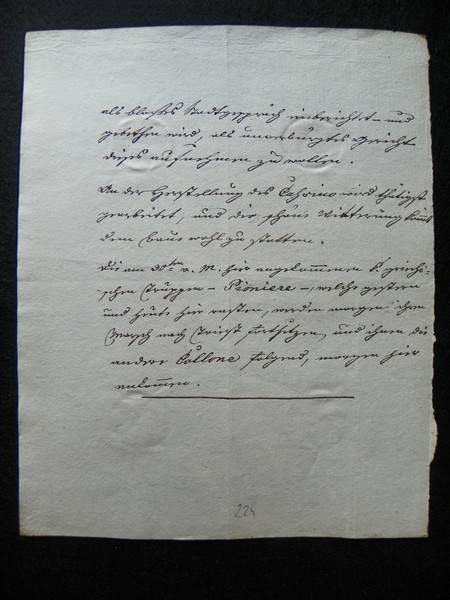 als bloßes Stadtgespräch einberichtet – und
gebethen wird, als unverbürgtes Gerücht
dieses aufnehmen zu wollen.
An der Herstellung des Cassino wird thätigst
gearbeitet, und die schöne Witterung kömmt
dem Baue wohl zu statten.
Die am 30ten v. M. hier angekommenen k. griechi-
schen Truppen – Pioniere –, welche gestern
und heute hier rasten, werden morgen ihren
Marsch nach Triest fortsetzen, und ihnen die
andere Collone folgend, morgen hier
ankommen.
224